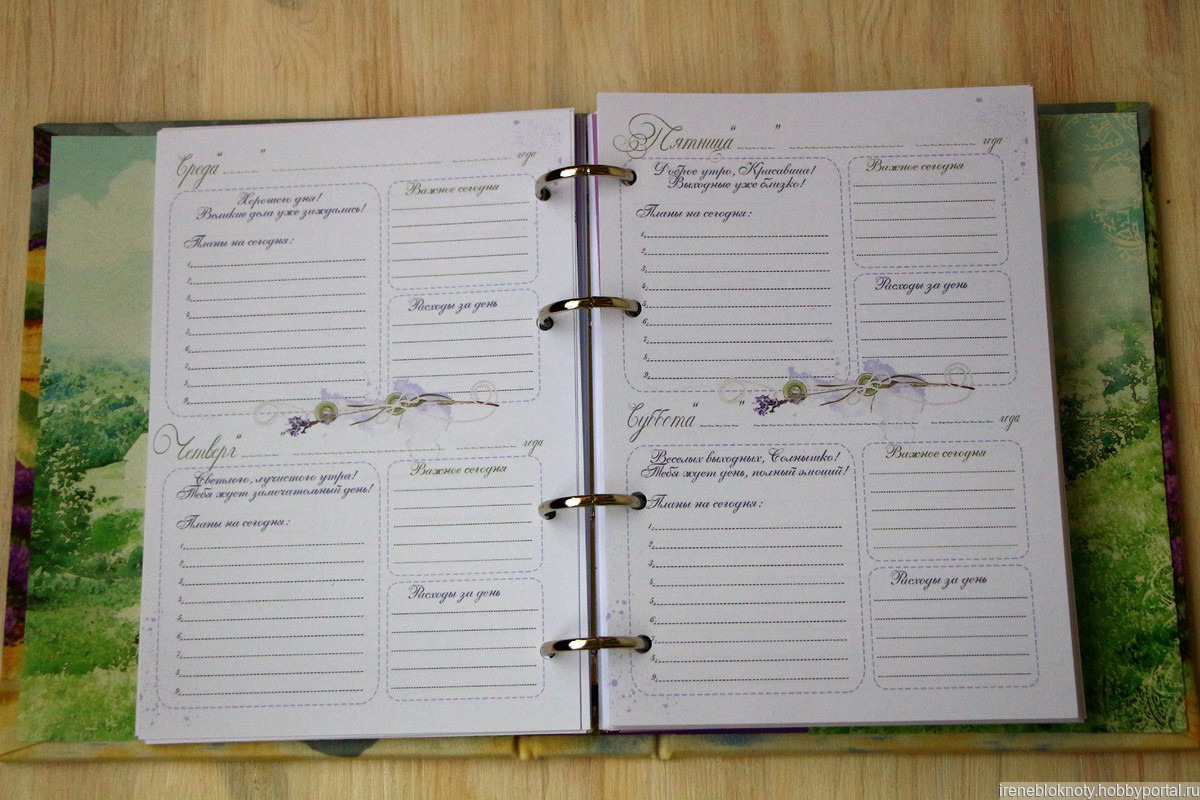 Среда " " года
Хорошего дня!
Великие дела уже заждались!
Планы на сегодня:
1.
2.
3.
4.
5.
6.
7.
8.
9.
Важное сегодня
Расходы за день
Четверг " " года
Светлого, лучистого утра!
Тебя ждет замечательный день!
Планы на сегодня:
1.
2.
3.
4.
5.
6.
7.
8.
9.
Важное сегодня
Расходы за день
Пятница " " года
Доброе утро, Красавица!
Выходные уже близко!
Планы на сегодня:
1.
2.
3.
4.
5.
6.
7.
8.
9.
Важное сегодня
Расходы за день
Суббота " " года
Веселых выходных, Солнышко!
Тебя ждет день, полный эмоций!
Планы на сегодня:
1.
2.
3.
4.
5.
6.
7.
8.
9.
Важное сегодня
Расходы за день
irenebloknoty.hobbyportal.ru